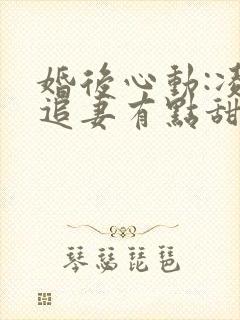 婚後心動:凌
追妻有點甜
琴瑟琵琶